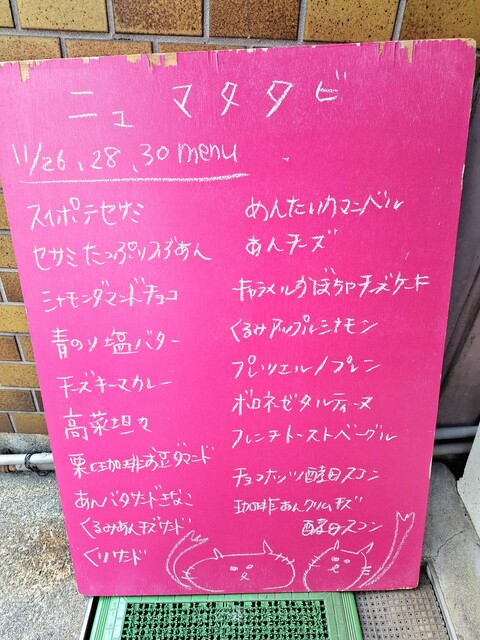 ニュ マタタビ
11/26、28、30 menu
スイポテセサミ
セサミたっぷりつぶあん
シナモンダマンドチョコ
青のり塩バター
チーズキーマカレー
高菜坦々
栗と珈琲あんダマンド
あんバタサンドきなこ
くるみあんチーズサンド
くりサンド
めんたいカマンベール
あんチーズ
キャラメルかぼちゃチーズケーキ
くるみアップルシナモン
プレッツェル/プレーン
ボロネーゼタルティーヌ
フレンチトーストベーグル
チョコナッツ酵母スコーン
珈琲あんクリームチーズ
酵母スコーン